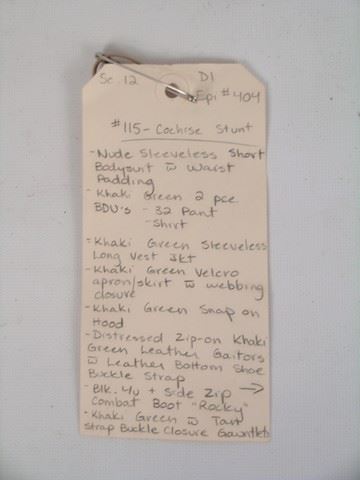 Sc. 12 D1
Epi #404
#115 - Cochise Stunt
- Nude Sleeveless Short
Bodysuit w̄ Waist
Padding
- Khaki Green 2 pce
BDU's - 32 Pant
- Shirt
- Khaki Green Sleeveless
Long Vest Jkt
- Khaki Green Velcro
apron/skirt w̄ webbing
closure
- Khaki Green Snap on
Hood
- Distressed Zip-on Khaki
Green Leather Gaitors
w̄ Leather Bottom Shoe
Buckle Strap
- Blk. 4u + Side Zip →
Combat Boot "Rocky"
- Khaki Green w̄ Tan
Strap Buckle Closure Gauntlets